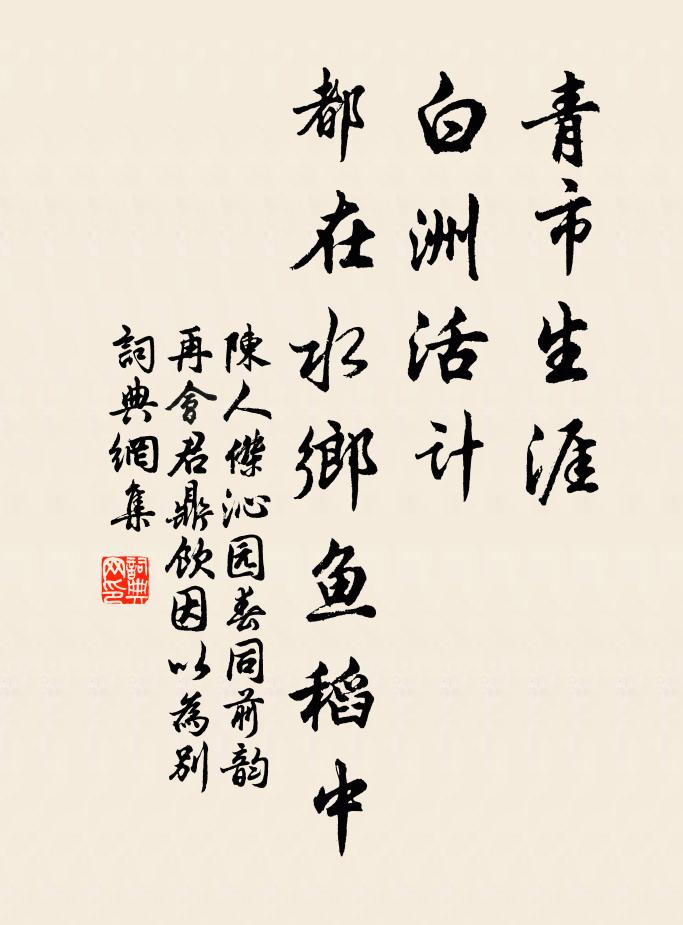 青市生涯
白洲活计
都在水鄉鱼稻中
陳人傑沁园春同前韵
再會君鼎飲因以為别
詞典網集
詞典网印